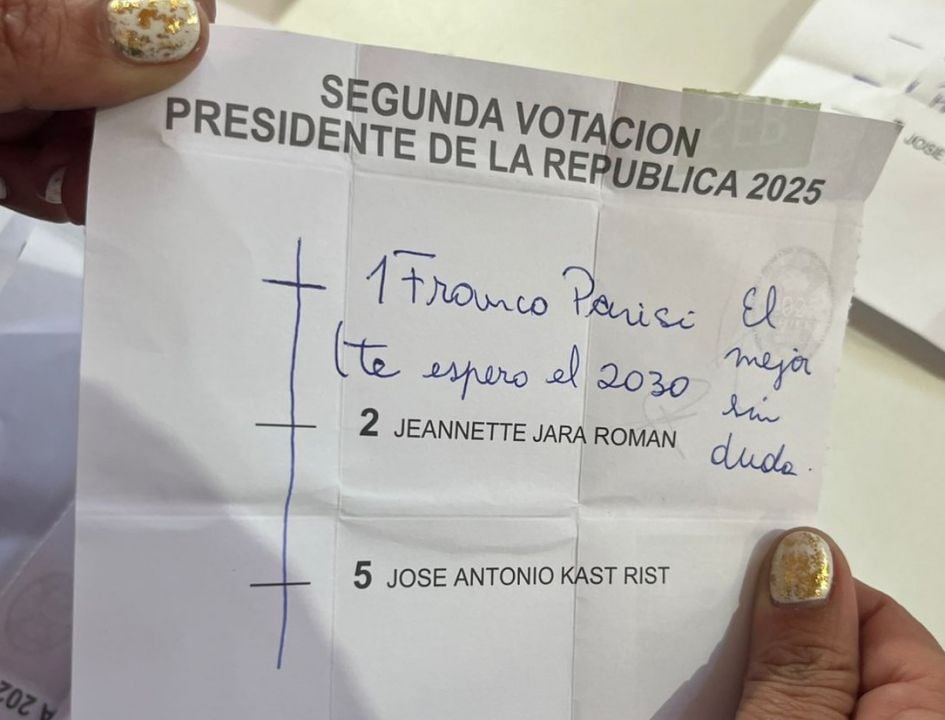 SEGUNDA VOTACION
PRESIDENTE DE LA REPUBLICA 2025
1 Franco Parisi
(te espero el 2030
El
mejor
sin
duda.
2 JEANNETTE JARA ROMAN
5 JOSE ANTONIO KAST RIST
JOSE
A 202